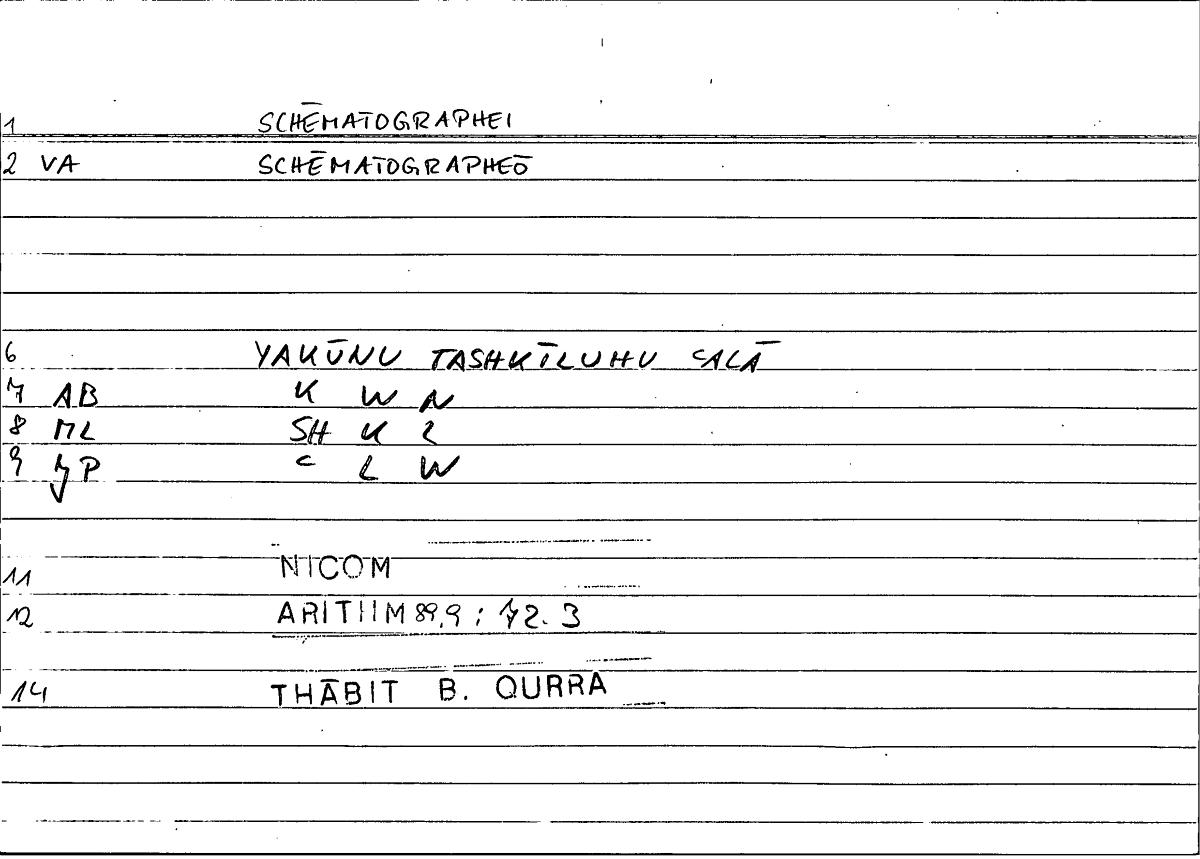 1 SCHĒMATOGRAPHEI
2 VA SCHĒMATOGRAPHEŌ
6 YAKŪNU TASHKĪLUHU ʿALĀ
7 AB K W N
8 ML SH K L
9 JP ʿ L W
11 NICOM
12 ARITHM 89,9 : 72.3
14 THĀBIT B. QURRA